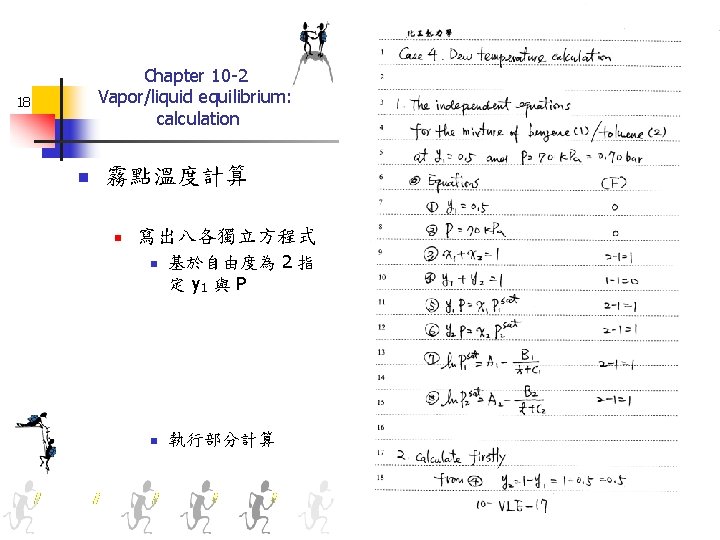 Chapter 10-2
Vapor/liquid equilibrium:
calculation
18
霧點溫度計算
寫出八各獨立方程式
基於自由度為 2 指
定 y₁ 與 P
執行部分計算
化工熱力學
1 Case 4. Dew temperature calculation
2
3 1. The independent equations
4 for the mixture of benzene (1) / toluene (2)
5 at y₁ = 0.5 and P = 70 kPa = 0.70 bar
6 Equations (F)
7 ① y₁ = 0.5 0
8 ② P = 70 kPa 0
9 ③ x₁ + x₂ = 1 2-1=1
10 ④ y₁ + y₂ = 1 1-1=0
11 ⑤ y₁P = x₁P₁ˢᵃᵗ 2-1=1
12 ⑥ y₂P = x₂P₂ˢᵃᵗ 2-1=1
13 ⑦ ln P₁ˢᵃᵗ = A₁ - B₁/(t+C₁) 2-1=1
14
15 ⑧ ln P₂ˢᵃᵗ = A₂ - B₂/(t+C₂) 2-1=1
16
17 2. Calculate firstly
18 from ④ y₂ = 1 - y₁ = 1 - 0.5 = 0.5
10-VLE-17